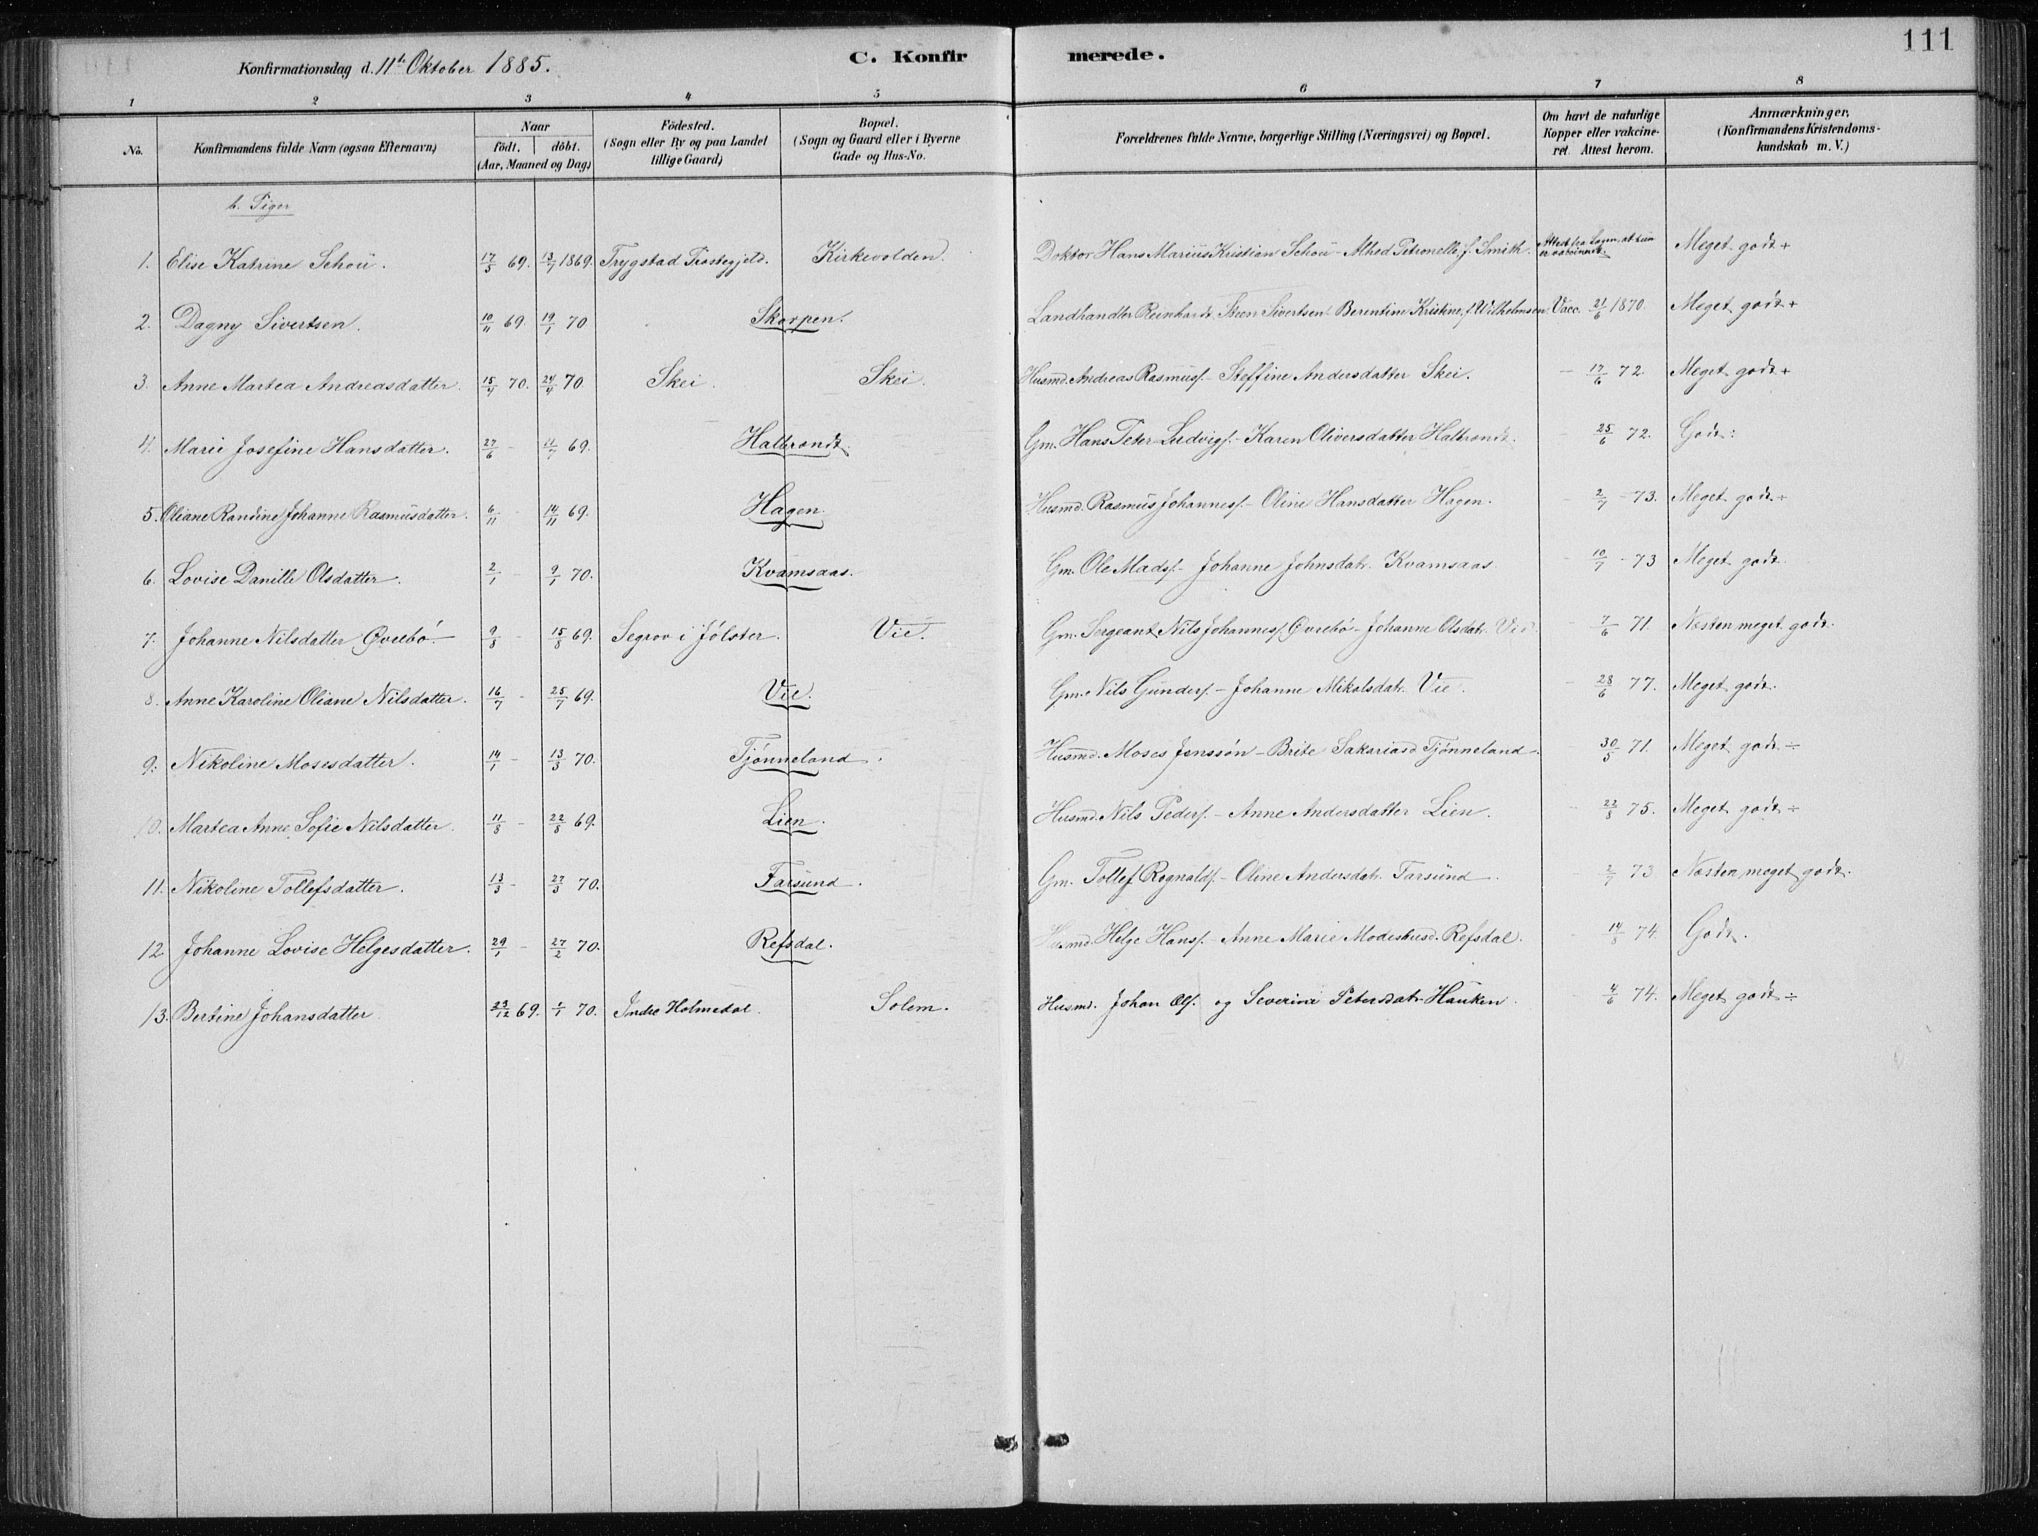 111
Konfirmationsdag d. 11te Oktober 1885. C. Konfirmerede.
1 2 3 4 5 6 7 8
No. Konfirmandens fulde Navn (ogsaa Efternavn) Naar født. døbt. (Aar, Maaned og Dag) Fødested. (Sogn eller By og paa Landet tillige Gaard) Bopæl. (Sogn og Gaard eller i Byerne Gade og Hus-No. Forældrenes fulde Navne, borgerlige Stilling (Næringsvei) og Bopæl. Om havt de naturlige Kopper eller vakcineret. Attest herom. Anmærkninger. (Konfirmandens Kristendomskundskab m. V.)
b. Piger
1. Elise Katrine Schou. 17/5 69. 13/7 1869. Trygstad Præstegjeld. Kirkevolden. Doktor Hans Marius Kristian Schou - Alhed Petronelle f. Smith. Attest fra at hun er vaccineret. Meget godt +
2. Dagny Sivertsen. 10/11 69. 19/1 70 Skorpen. Landhandler Reinhardt Steen Sivertsen Berentine Kristine f. Wilhelmsen Vacc. 21/6 1870. Meget godt +
3. Anne Martea Andreasdatter. 15/4 70. 24/4 70. Skei. Skei. Husmd. Andreas Rasmusf. - Steffine Andersdatter Skei. - 17/6 72. Meget godt +
4. Marie Josefine Hansdatter. 27/6 - 11/7 69. Halbrendt. Gm. Hans Peter Ludvigf. - Karen Oliversdatter Halbrendt. - 25/6 72. Godt.
5. Oliane Randine Johanne Rasmusdatter. 6/11 - 14/11 69. Hagen. Husmd. Rasmus Johannesf. - Oline Hansdatter Hagen. - 2/7 - 73. Meget godt ÷
6. Lovise Danille Olsdatter. 2/1 - 9/1 70. Kvamsaas. Gm. Ole Madsf. - Johanne Johnsdatr. Kvamsaas - 10/7 - 73 Meget godt
7. Johanne Nilsdatter Øvrebø - 9/8 - 15/8 69. Segrov i Jølster. Vie. Gm. Sergeant Nils Johannesf. Øvrebø - Johanne Olsdatr. Vie - 7/6 71. Næsten meget godt.
8. Anne Karoline Oliane Nilsdatter. 16/7 - 25/7 69. Vie. Gm. Nils Gundersf. - Johanne Mikolsdatr. Vie. - 28/6 77. Meget godt.
9. Nikoline Mosesdatter. 14/1 - 13/3 70. Tjønneland. Husmd. Moses Jenssøn - Brite Sakariasd Tjønneland. - 30/5 71. Meget godt ÷
10. Martea Anne Sofie Nilsdatter. 11/8 - 22/8 69. Lien. Husmd. Nils Pedersf. - Anne Andersdatter Lien. - 22/8 75. Meget godt ÷
11. Nikoline Tollefsdatter. 13/3 - 27/3 70. Farsund. Gm. Tollef Rognaldf. - Oline Andersdatr. Farsund - - 2/7 73 Næsten meget godt.
12. Johanne Lovise Helgesdatter. 29/1 - 27/2 70. Refsdal. Husmd. Helge Hansf. - Anne Marie Modestusd. Refsdal. - 14/8 74 Godt.
13. Bertine Johansdatter 23/12 69. 2/1 70. Indre Holmedal. Solem. Husmd. Johan Olsf. og Severine Petersdatr. Hauken. - 4/6 74. Meget godt ÷